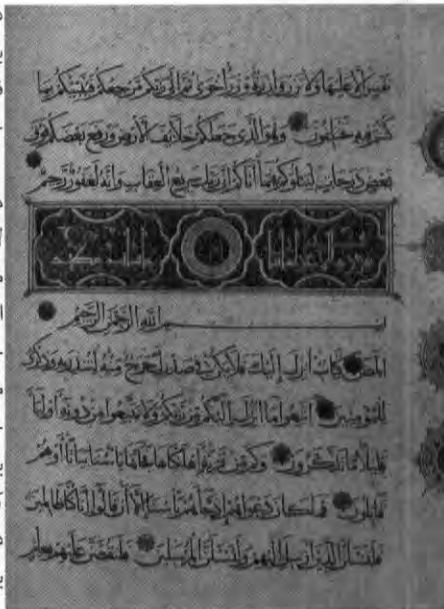 نفس إلا عليها ولا تزر وازرة وزر أخرى ثم إلى ربكم مرجعكم فينبئكم بما
كنتم فيه تختلفون وهو الذي جعلكم خلائف الأرض ورفع بعضكم فوق
بعض درجات ليبلوكم في ما آتاكم إن ربك سريع العقاب وإنه لغفور رحيم
بسم الله الرحمن الرحيم
المص كتاب أنزل إليك فلا يكن في صدرك حرج منه لتنذر به وذكرى
للمؤمنين اتبعوا ما أنزل إليكم من ربكم ولا تتبعوا من دونه أولياء
قليلا ما تذكرون وكم من قرية أهلكناها فجاءها بأسنا بياتا أو هم
قائلون فما كان دعواهم إذ جاءهم بأسنا إلا أن قالوا إنا كنا ظالمين
فلنسألن الذين أرسل إليهم ولنسألن المرسلين فلنقصن عليهم بعلم